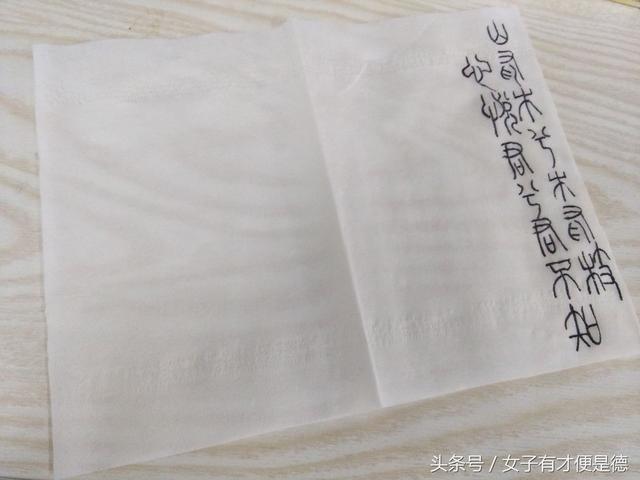 山有木兮木有枝
心悦君兮君不知
头条号 / 女子有才便是德